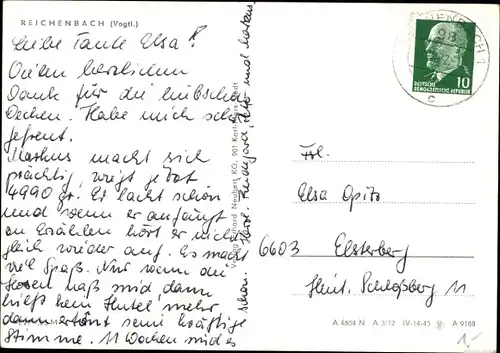 REICHENBACH (Vogtl.)
Liebe Tante Elsa!
Vielen herzlichen
Dank für die hübschen
Decken. Habe mich sehr
gefreut.
Markus macht sich
prächtig, wiegt jetzt
4990 gr. Er lacht schon
und wenn er anfängt
zu Erzählen hört er nicht
gleich wieder auf. Es macht
viel Spaß. Nur wenn die
Hosen naß sind dann
hießt kein mehr
dann ertönt seine kräftige
Stimme. 11 Wochen sind es
schon. Herzl. und Markus.
Verlag Erhard Neubert KG, 901 Karl-Marx-Stadt
10
DEUTSCHE
DEMOKRATISCHE REPUBLIK
c
Frl.
Elsa Opitz
6603 Elsterberg
Hint. Schloßberg 11
A 4604 N A 3/72 IV-14-45 A 9188
A 1-